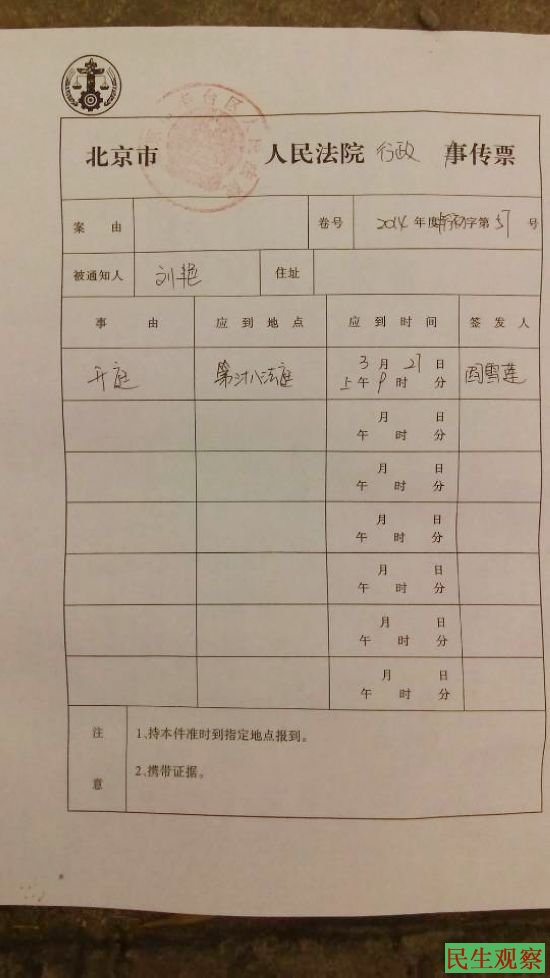 北京市 人民法院 行政 事传票
案由 卷号 2014 年度 字第 57 号
被通知人 刘艳 住址
事由 应到地点 应到时间 签发人
开庭 第 八法庭 3 月 27 日 闫雪莲
上午 9 时 分
月 日
午 时 分
月 日
午 时 分
月 日
午 时 分
月 日
午 时 分
月 日
午 时 分
月 日
午 时 分
注意
1、持本件准时到指定地点报到。
2、携带证据。
民生观察